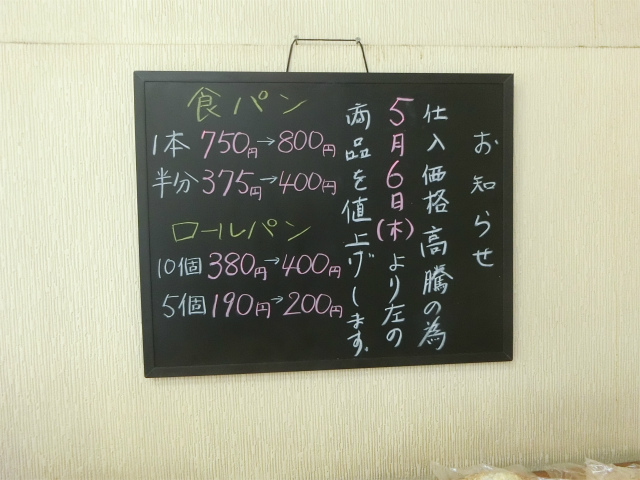 お知らせ
仕入価格高騰の為
5月6日(木)より左の
商品を値上げします。
食パン
1本 750円→800円
半分 375円→400円
ロールパン
10個 380円→400円
5個 190円→200円